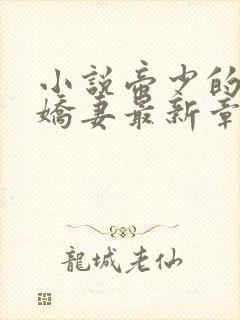 小説帝少的
嬌妻最新章
龍城老仙